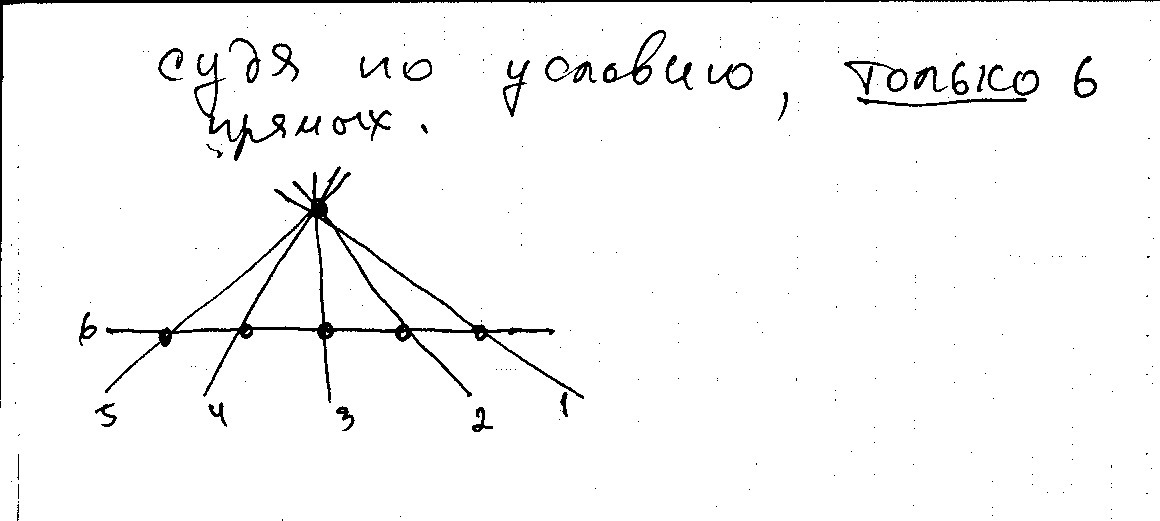 судя по условию, только 6
прямых.
6
5 4 3 2 1